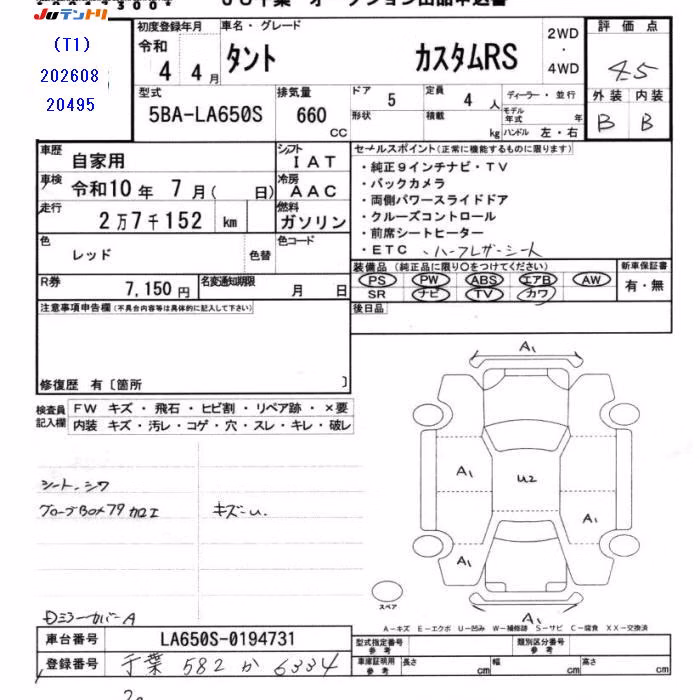 Juテントリ
(T1)
202608
20495
初度登録年月
令和
4 4月
車名・グレード
タント カスタムRS
2WD
・
4WD
評価点
4.5
外装 内装
B B
型式
5BA-LA650S
排気量
660
CC
ドア
5
形状
定員
4 人
積載
kg
ディーラー・並行
モデル年式 年
ハンドル 左・右
車歴
自家用
車検
令和10年 7月( 日)
走行
2万7千152 km
色
レッド
色替
シフト
IAT
冷房
AAC
燃料
ガソリン
色コード
R券
7,150円
名変通知期限
月 日
セールスポイント(正常に機能するものに限ります)
・純正9インチナビ・TV
・バックカメラ
・両側パワースライドドア
・クルーズコントロール
・前席シートヒーター
・ETC ・ハーフレザーシート
装備品(純正品に限り○をつけてください)
PS PW ABS エアB AW
SR ナビ TV カワ
新車保証書
有・無
後日品
注意事項申告欄(不具合内容等は具体的に記入して下さい)
修復歴 有〔箇所 〕
検査員
記入欄
FW キズ・飛石・ヒビ割・リペア跡・×要
内装 キズ・汚レ・コゲ・穴・スレ・キレ・破レ
シート、シワ
グローブBOXフタ加工
キズ・u.
Dミラーカバー A
A1
A1
U2
A1
A1
A1
スペア
A-キズ E-エクボ U-凹み W-補修跡 S-サビ C-腐食 XX-交換済
車台番号
LA650S-0194731
登録番号
千葉 582 か 6334
型式指定番号
参考
類別区分番号
参考
車庫証明用
参考
長さ cm
幅 cm
高さ cm